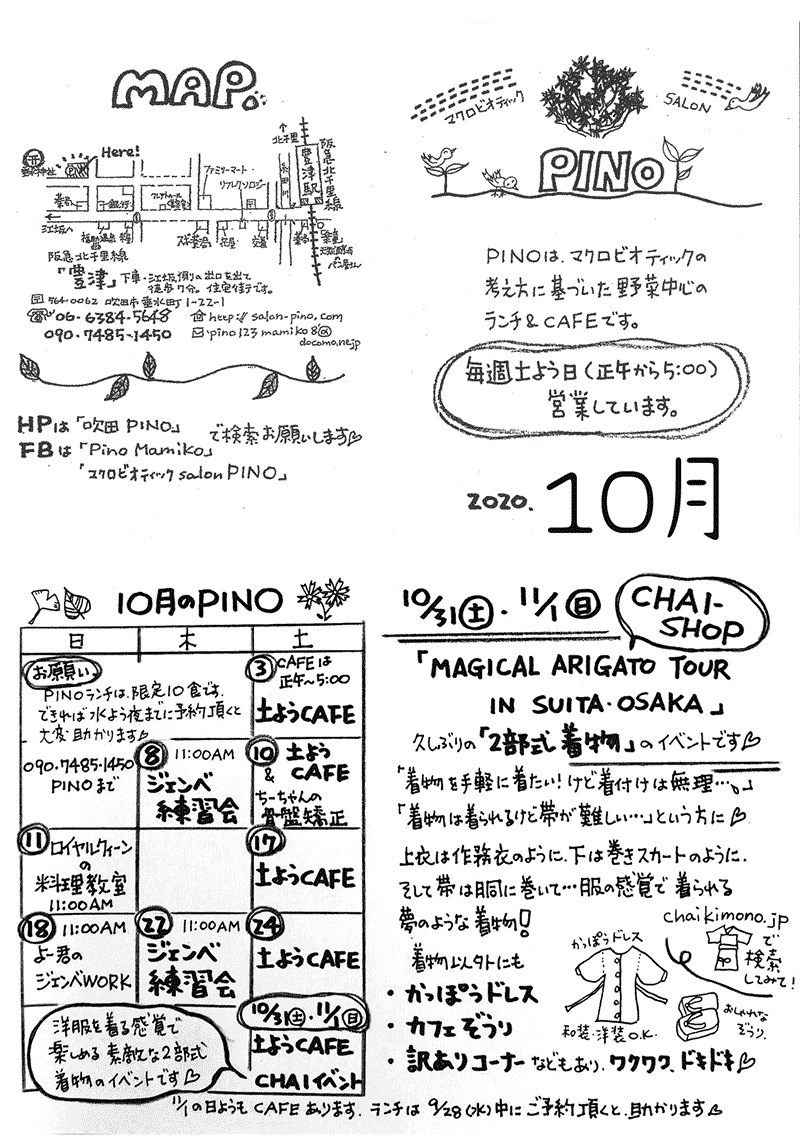 MAP.
Here!
ファミリーマート
リフレクソロジー
北千里
豊津駅
阪急北千里線
江坂へ
スギ薬局
花屋
交番
阪急北千里線
「豊津」下車・江坂側の出口を出て
徒歩7分。住宅街です。
564-0062 吹田市垂水町1-22-1
06-6384-5648
http://salon-pino.com
090.7485-1450
pino123mamiko8@
docomo.ne.jp
HPは「吹田PINO」
FBは「Pino Mamiko」
で検索お願いします
「マクロビオティック salon PINO」
マクロビオティック
SALON
PINO
PINOは、マクロビオティックの
考え方に基づいた野菜中心の
ランチ&CAFEです。
毎週土よう日(正午から5:00)
営業しています。
2020. 10月
10月のPINO
日 木 土
お願い。
PINOランチは、限定10食です。
できれば水よう夜までに予約頂くと
大変助かります
090.7485-1450
PINOまで
3 CAFEは
正午〜5:00
土ようCAFE
8 11:00AM
ジェンベ
練習会
10 土よう
& CAFE
ちーちゃんの
骨盤矯正
11 ロイヤルクィーン
の
料理教室
11:00AM
17
土ようCAFE
18 11:00AM
よー君の
ジェンベWORK
22 11:00AM
ジェンベ
練習会
24
土ようCAFE
洋服を着る感覚で
楽しめる素敵な2部式
着物のイベントです
10/31(土)・11/1(日)
土ようCAFE
CHAIイベント
10/31(土)・11/1(日)
CHAI-
SHOP
「MAGICAL ARIGATO TOUR
IN SUITA・OSAKA」
久しぶりの「2部式着物」のイベントです
「着物を手軽に着たい!けど着付けは無理…。」
「着物は着られるけど帯が難しい…」という方に
上衣は作務衣のように、下は巻きスカートのように、
そして帯は胴に巻いて…服の感覚で着られる
夢のような着物!
chaikimono.jp
で
検索
してみて!
着物以外にも
・かっぽうドレス
・カフェぞうり
・訳ありコーナーなどもあり、ワクワク、ドキドキ
かっぽうドレス
和装・洋装O.K.
おしゃれな
ぞうり。
11/1の日ようもCAFEあります。ランチは9/28(水)中にご予約頂くと、助かります